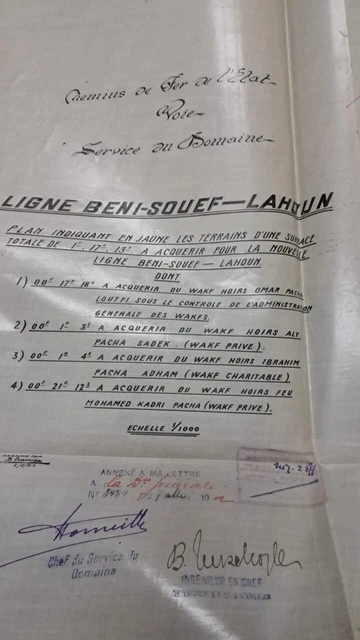 Chemins de Fer de l'Etat
Voie
Service du Domaine
LIGNE BENI-SOUEF—LAHOUN
PLAN INDIQUANT EN JAUNE LES TERRAINS D'UNE SURFACE
TOTALE DE 1F. 17K. 13S. A ACQUERIR POUR LA NOUVELLE
LIGNE BENI-SOUEF — LAHOUN.
DONT
1) 00F 17K 18S A ACQUERIR DU WAKF HOIRS OMAR PACHA
LOUTFI SOUS LE CONTROLE DE L'ADMINISTRATION
GENERALE DES WAKFS.
2) 00F 1K 3S A ACQUERIR DU WAKF HOIRS ALY
PACHA SADEK. (WAKF PRIVE).
3) 00F 1K 4S A ACQUERIR DU WAKF HOIRS IBRAHIM
PACHA ADHAM (WAKF CHARITABLE)
4) 00F 21K 12S A ACQUERIR DU WAKF HOIRS FEU
MOHAMED KADRI PACHA (WAKF PRIVE).
ECHELLE 1/1000
ANNEXÉ A MA LETTRE
A la
No DU 19
Chef du Service du
Domaine
INGÉNIEUR EN CHEF
DE LA VOIE ET DES TRAVAUX